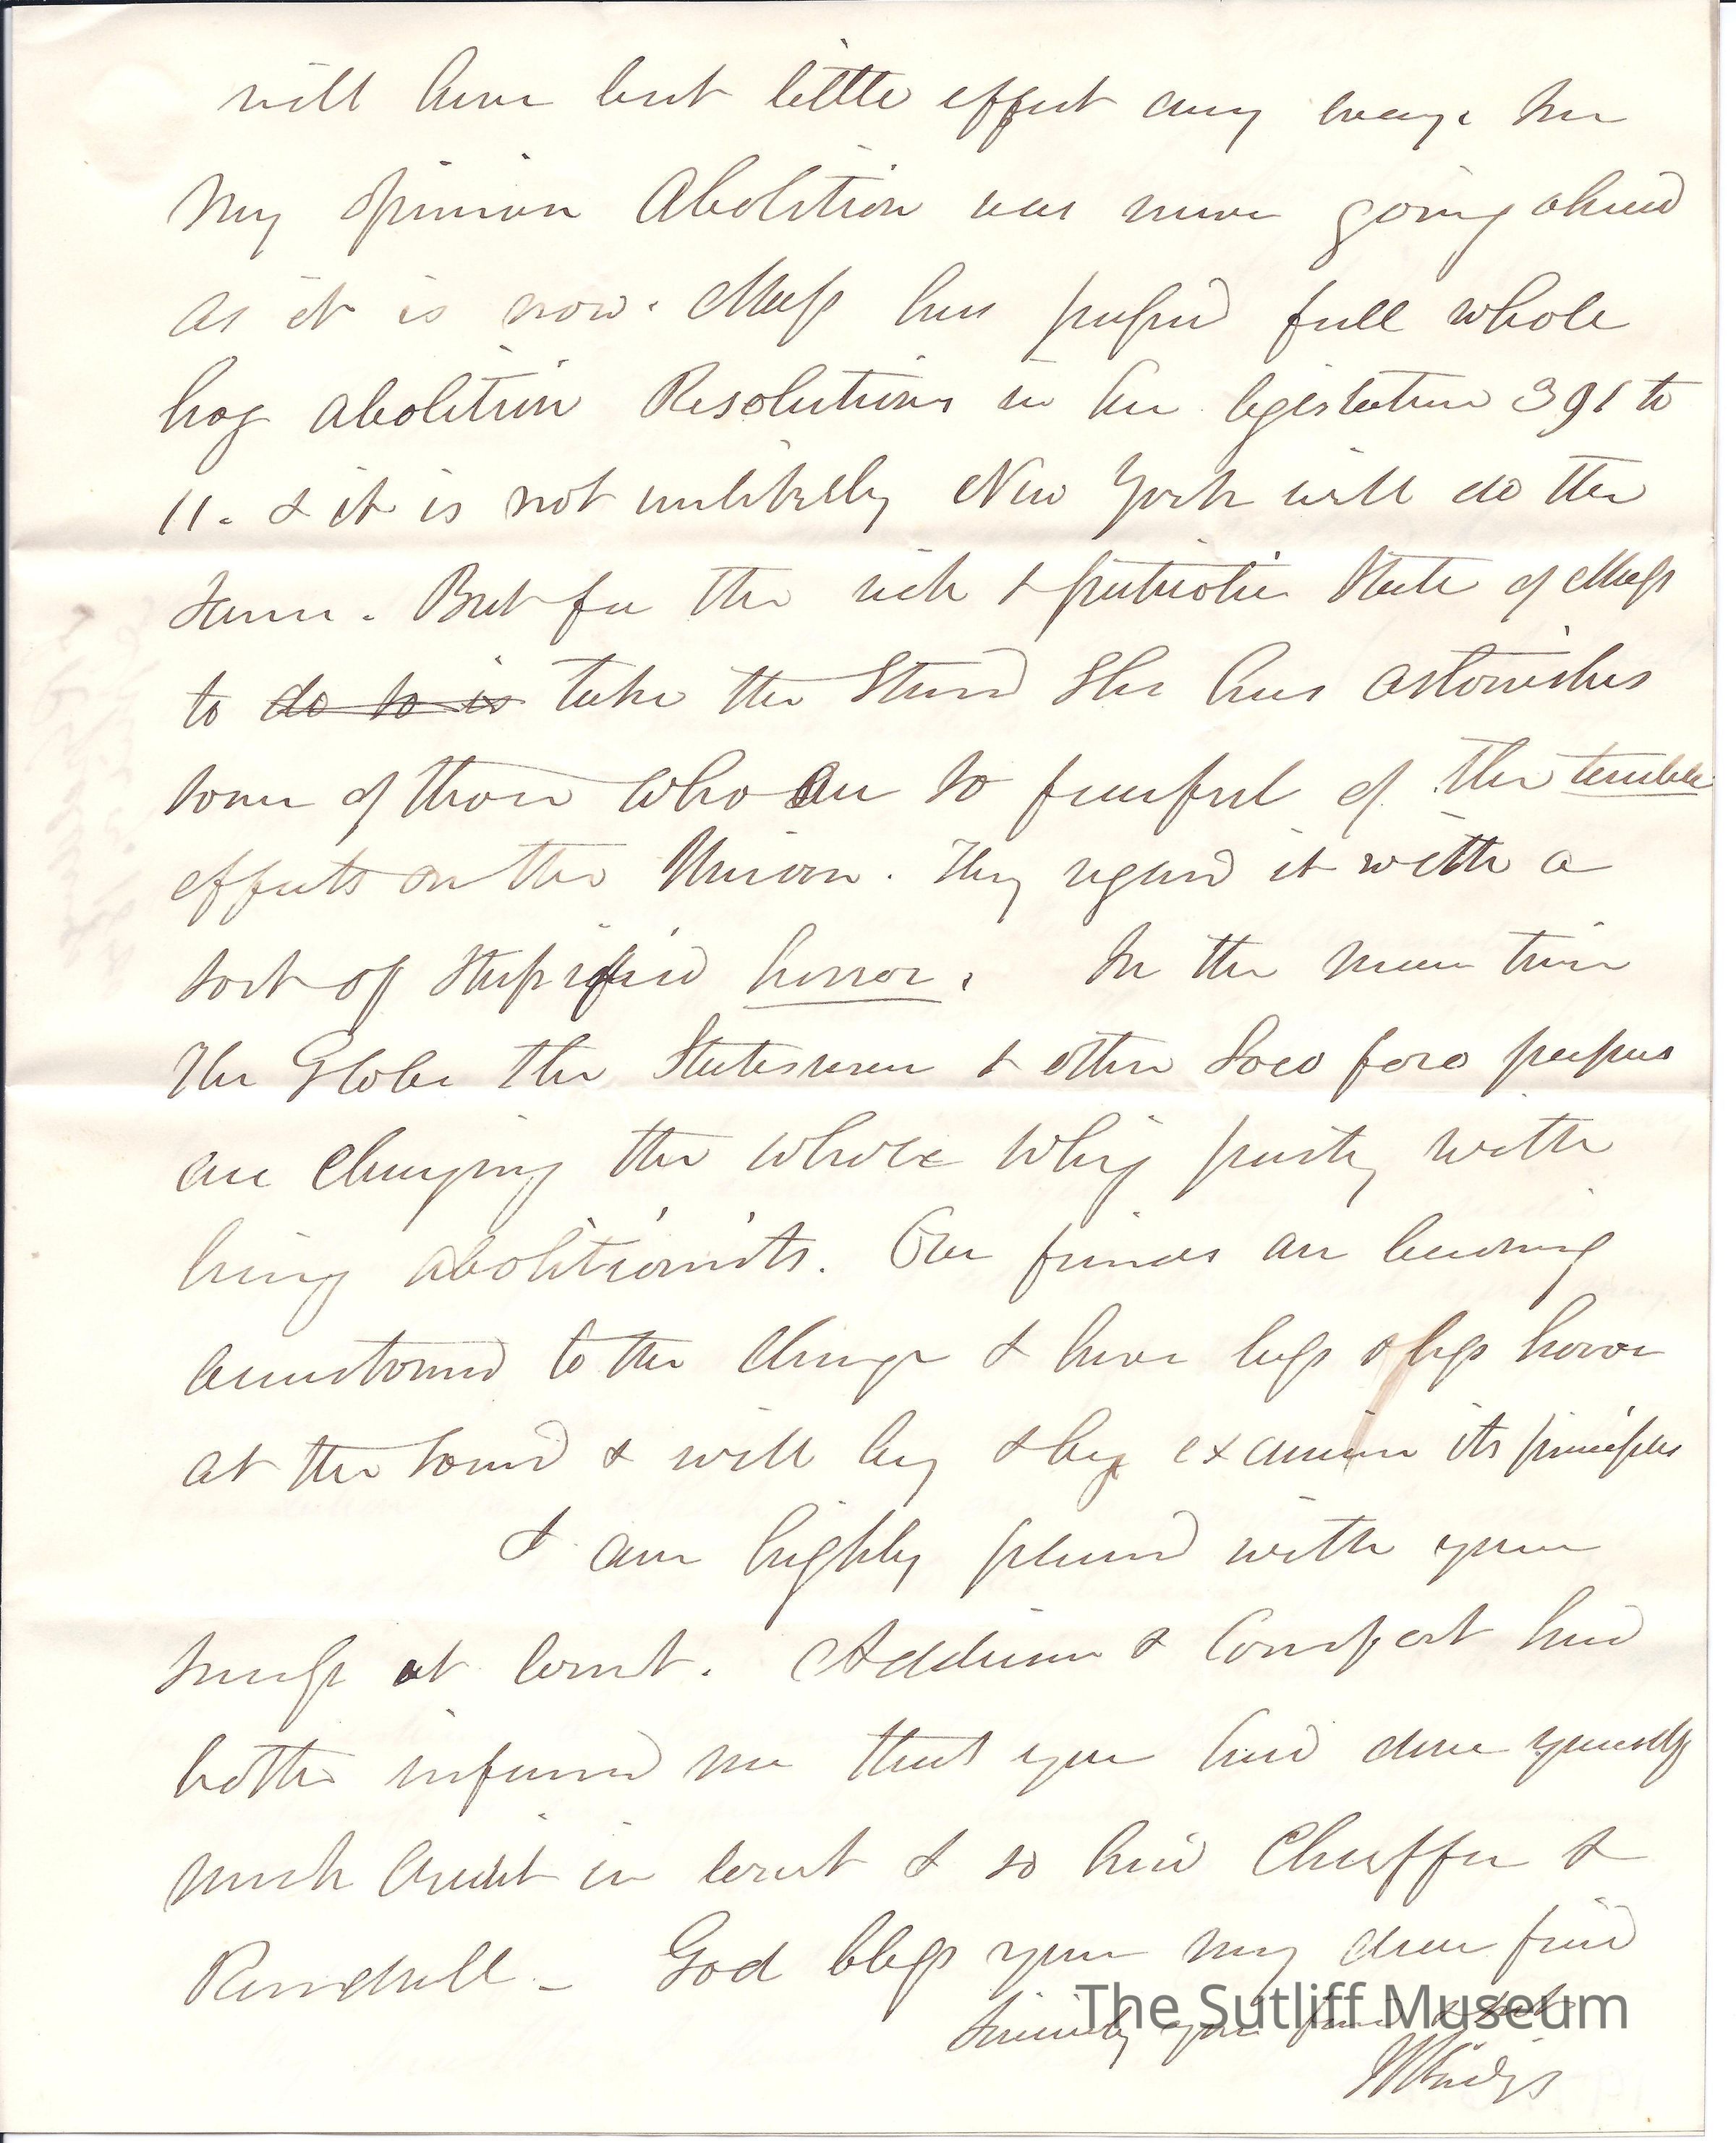 will have but little effect any way. In
My opinion Abolition was never going ahead
as it is now. Mass has passed full whole
hog abolition Resolutions in her legislature 391 to
11. & it is not unlikely New York will do the
same. But for the rich & patriotic State of Mass
to do so is take the Stand She has astonishes
some of those who are so fearful of the terrible
effects on the Union. They regard it with a
sort of stupified horror. In the mean time
The Globe the Statesman & other Loco foco papers
are charging the whole Whig party with
being abolitionists. Our friends are becoming
accustomed to the charge & have less & less horror
at the sound & will by & by examine its principles
I am highly pleased with your
success at court. Addison & Comfort had
both informed me that you had done yourself
much Credit in court & so had Chaffee &
Randall - God bless you my dear friend
Sincerely your friend
The Sutliff Museum